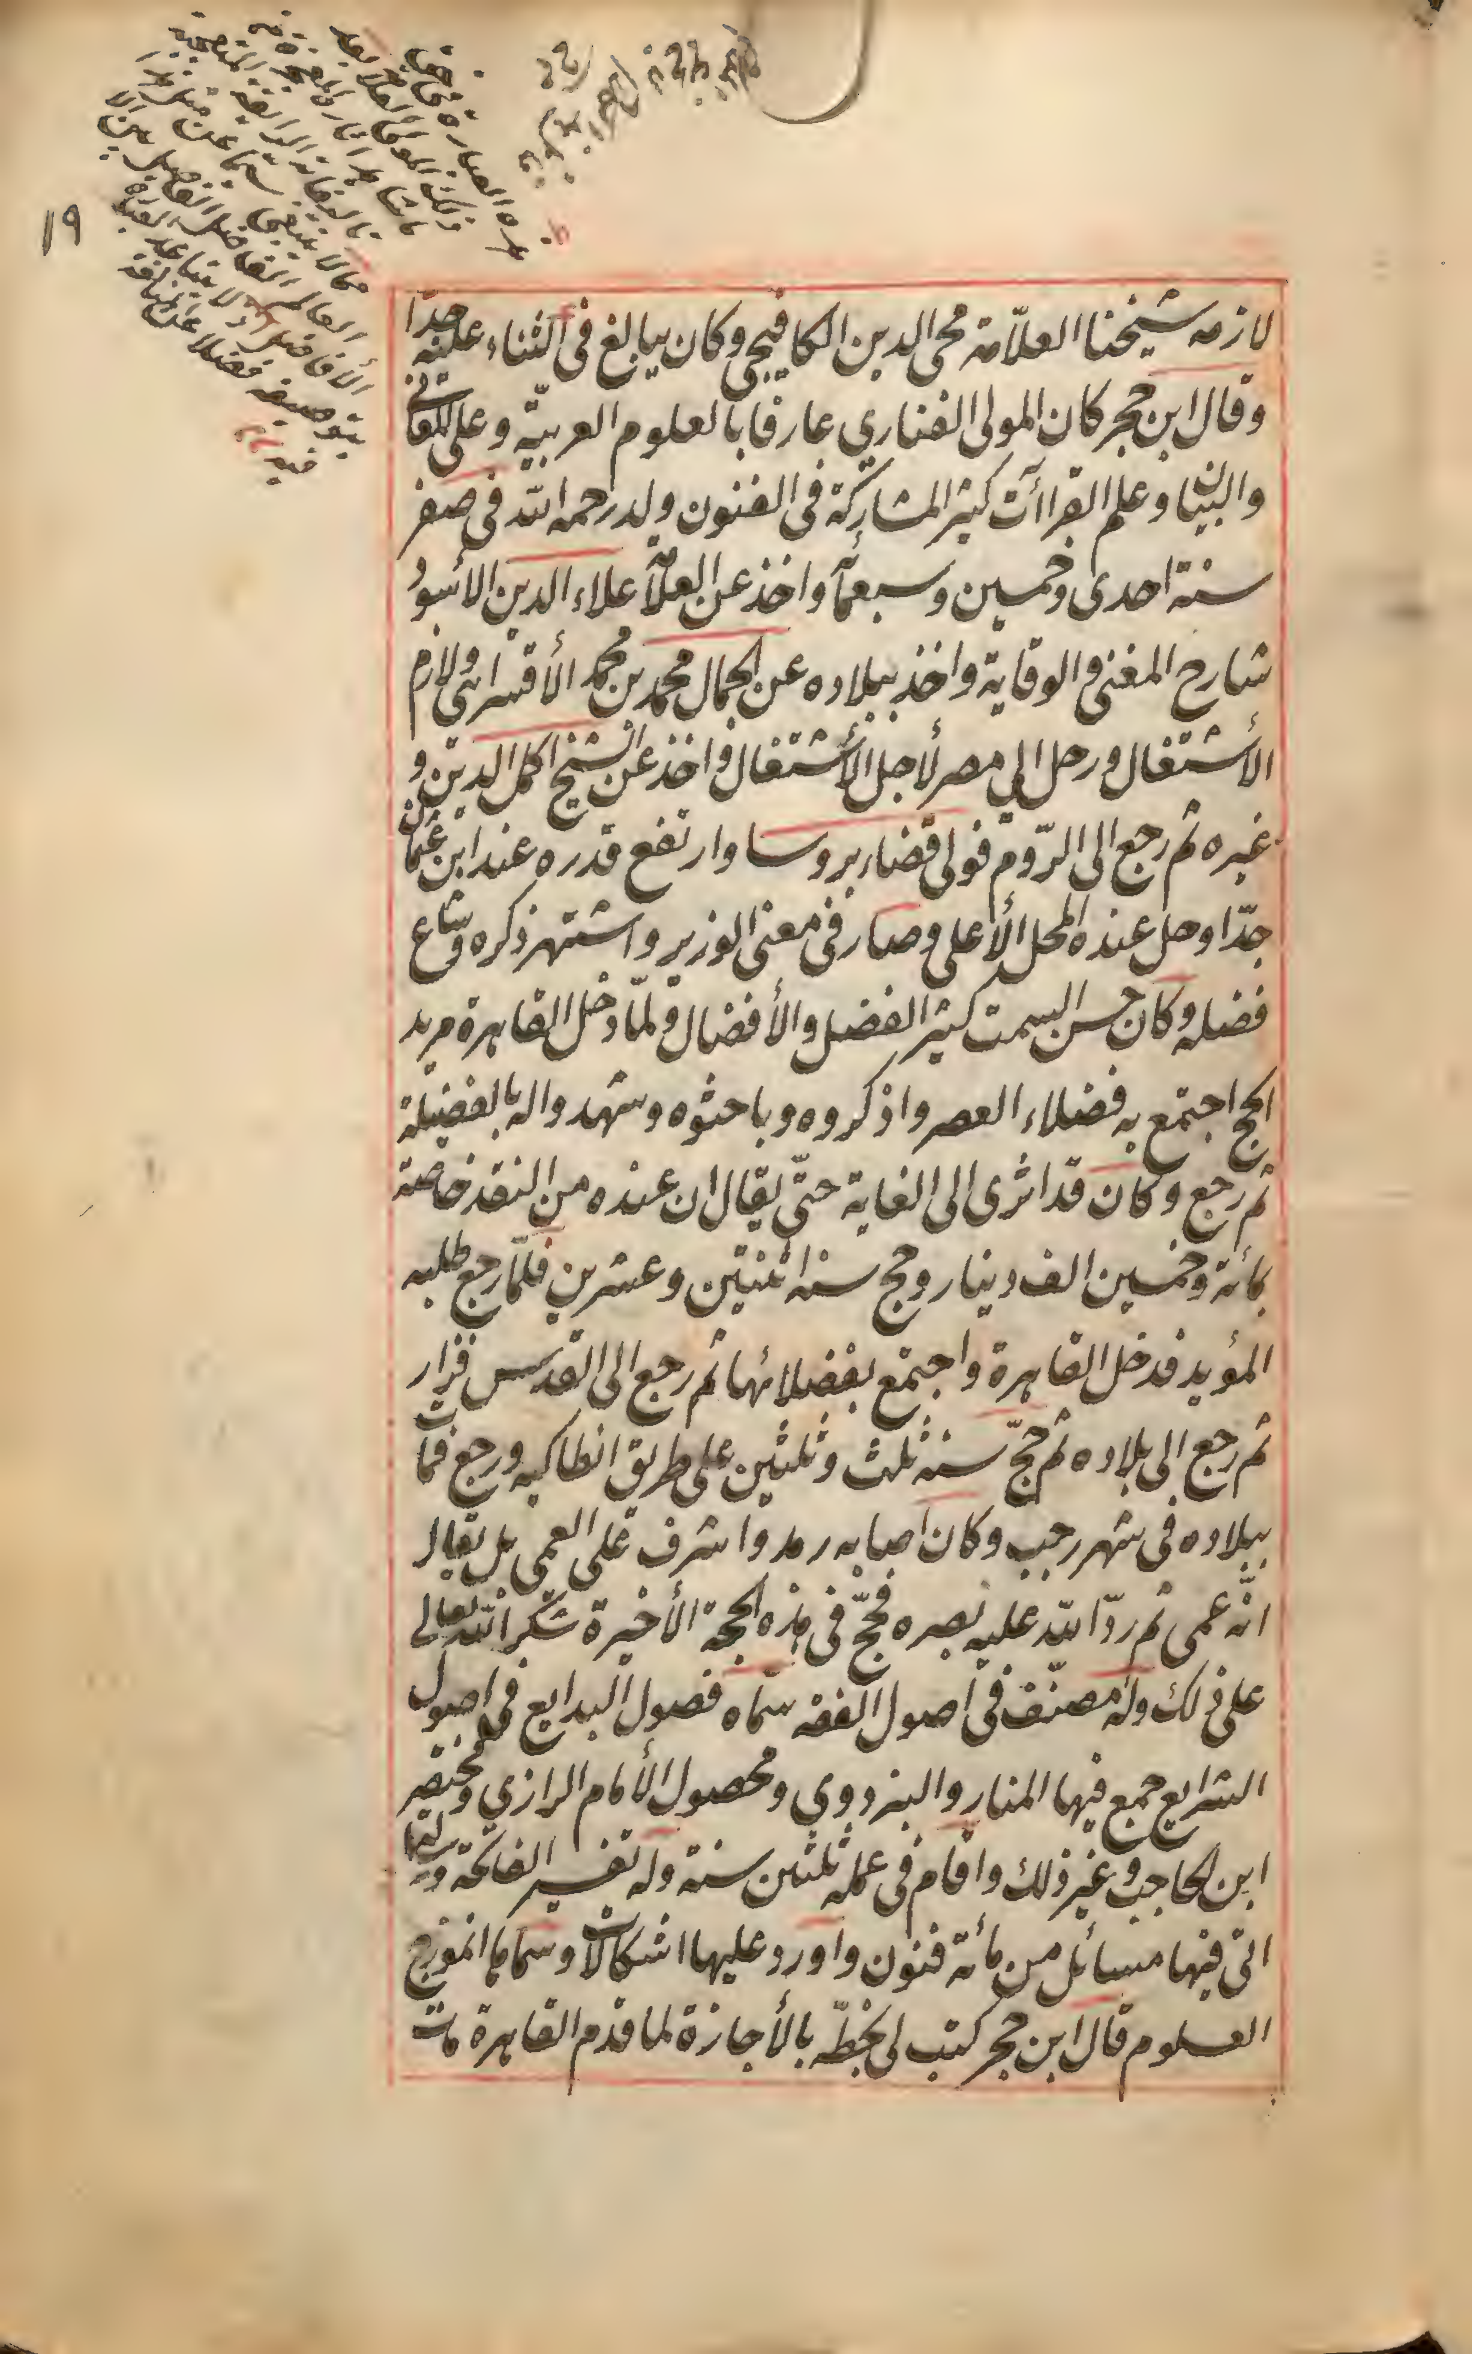 ١٩
لازمه شيخنا العلّامة محى الدين الكافيجى وكان يبالغ فى الثناء عليه جدّا
وقال ابن حجر كان المولى الفنارى عارفا بالعلوم العربيّة وعلمى المعانى
والبيان وعلم القراآت كثير المشاركة فى الفنون ولد رحمه اللّه فى صفر
سنة احدى وخمسين وسبعمآة واخذ عن العلّآمة علاء الدين الأسود
شارح المغنى والوقاية واخذ ببلاده عن الجمال محمد بن محمد الأقسرائى ولازم
الأشتغال ورحل الى مصر لأجل الأشتغال واخذ عن الشيخ اكمل الدين و
غيره ثم رجع الى الرّوم فولى قضاء بروسا وارتفع قدره عند ابن عثمان
جدّا وحل عنده المحل الأعلى وصار فى معنى الوزير واشتهر ذكره وشاع
فضله وكان حسن السمت كثير الفضل والأفضال ولمّا دخل القاهرة مريد
الحج اجتمع به فضلاء العصر واذكروه وباحثوه وشهدوا له بالفضيلة
ثم رجع وكان قد اثرى الى الغاية حتّى يقال ان عنده من النقد خاصّة
مأئة وخمسين الف دينار وحج سنة اثنتين وعشرين فلمّا رجع طلبه
المؤيد فدخل القاهرة واجتمع بفضلائها ثم رجع الى القدس فزار
ثم رجع الى بلاده ثم حجّ سنة ثلث وثلثين على طريق انطاكيه ورجع فمات
ببلاده فى شهر رجب وكان اصابه رمد واشرف على العمى بل يقال
انّه عمى ثم ردّ اللّه عليه بصره فحجّ فى هذه الحجة الأخيرة شكرا للّه تعالى
على ذلك وله مصنّف فى اصول الفقه سمّاه فصول البدايع فى اصول
الشرايع جمع فيها المنار والبزدوى ومحصول الأمام الرازي ومختصر
ابن الحاجب وغير ذلك واقام فى عمله ثلثين سنة وله تفسير الفاتحة ورسالة
اتى فيها مسائل من مأئة فنون واورد عليها اشكالات وسماها انموزج
العلوم قال ابن حجر كتب لى بخطّه بالأجازة لما قدم القاهرة مات